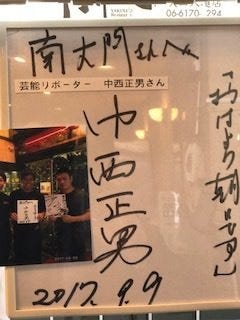 06-6170-294
南大門さんへ
芸能リポーター 中西正男さん
中西正男
「おはよう朝日です」
2017.9.9